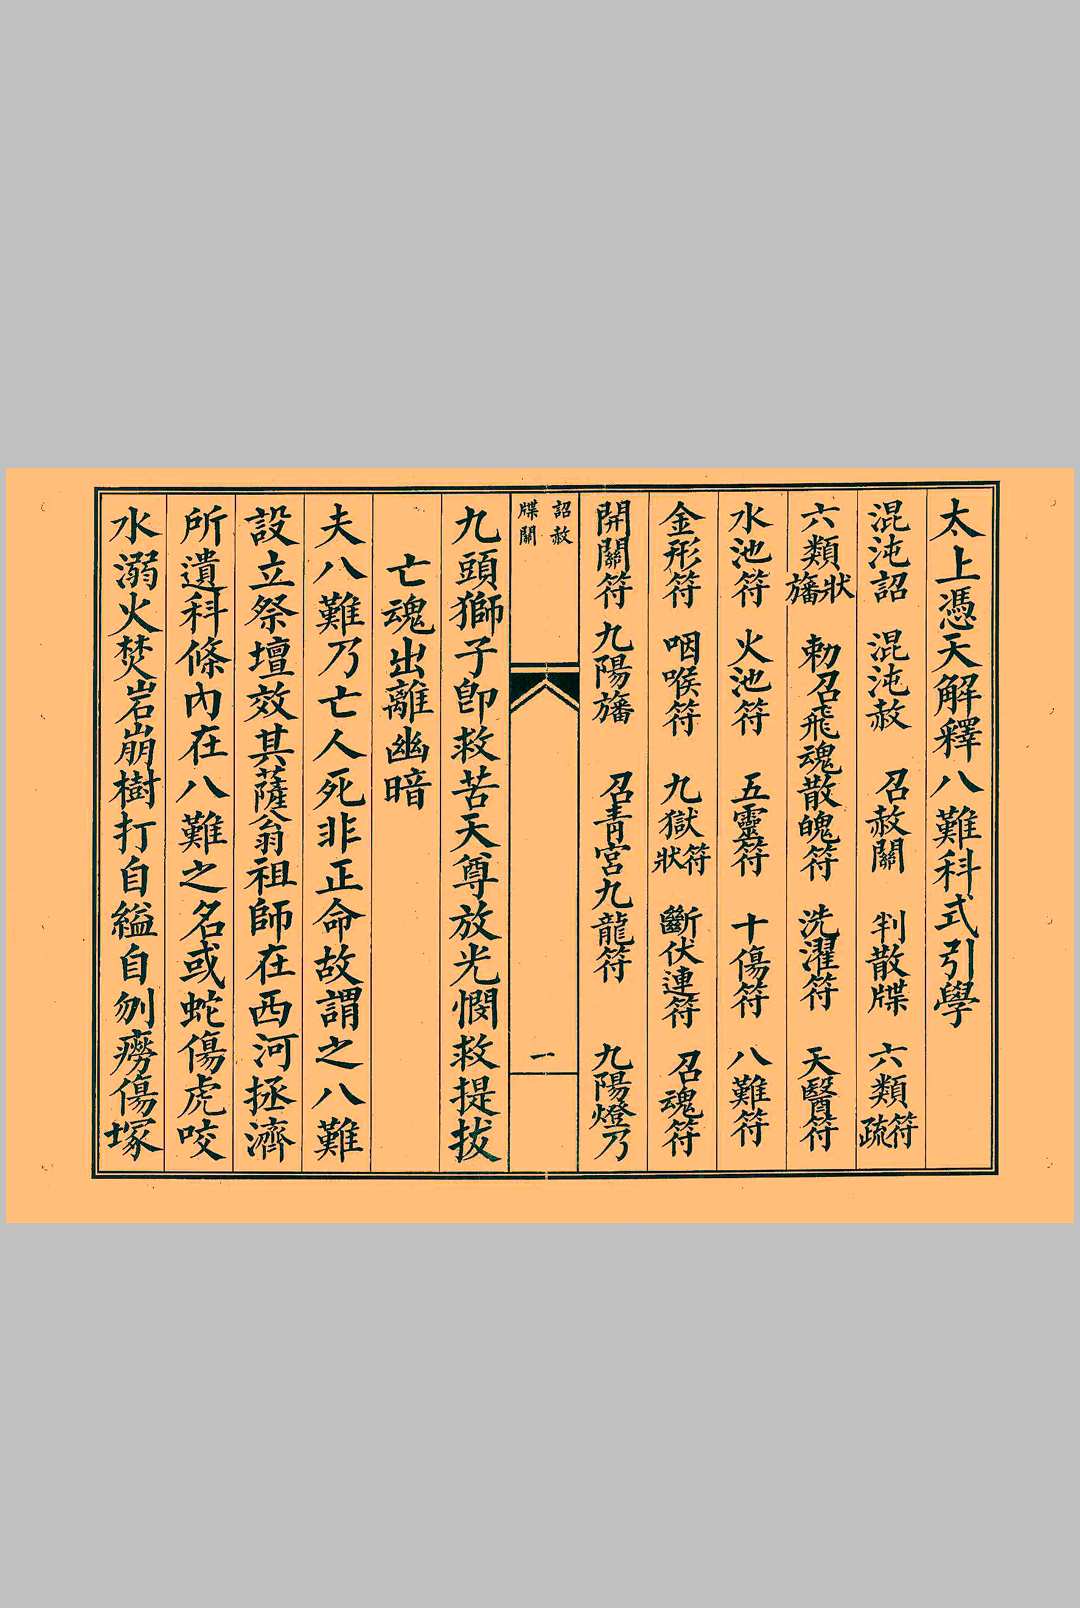 太上憑天解釋八難科式引學
混沌詔　混沌赦　召赦關　判散牒　六類符疏
六類狀旛　勅召飛魂散魄符　洗濯符　天醫符
水池符　火池符　五靈符　十傷符　八難符
金形符　咽喉符　九獄符狀　斷伏連符　召魂符
開關符　九陽旛　召青宮九龍符　九陽燈乃
詔赦
牒關
一
九頭獅子即救苦天尊放光憫救提拔
亡魂出離幽暗
夫八難乃亡人死非正命故謂之八難
設立祭壇效其薩翁祖師在西河拯濟
所遺科條內在八難之名或蛇傷虎咬
水溺火焚岩崩樹打自縊自刎癆傷塚